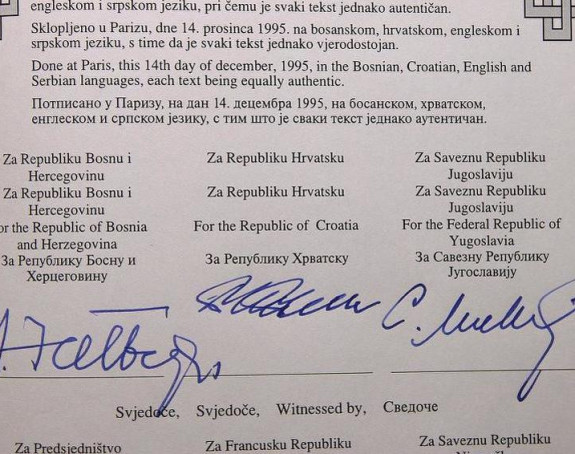 engleskom i srpskom jeziku, pri čemu je svaki tekst jednako autentičan.
Sklopljeno u Parizu, dne 14. prosinca 1995. na bosanskom, hrvatskom, engleskom i
srpskom jeziku, s time da je svaki tekst jednako vjerodostojan.
Done at Paris, this 14th day of december, 1995, in the Bosnian, Croatian, English and
Serbian languages, each text being equally authentic.
Потписано у Паризу, на дан 14. децембра 1995, на босанском, хрватском,
енглеском и српском језику, с тим што је сваки текст једнако аутентичан.
Za Republiku Bosnu i
Hercegovinu
Za Republiku Bosnu i
Hercegovinu
or the Republic of Bosnia
and Herzegovina
За Републику Босну и
Херцеговину
Za Republiku Hrvatsku
Za Republiku Hrvatsku
For the Republic of Croatia
За Републику Хрватску
Za Saveznu Republiku
Jugoslaviju
Za Saveznu Republiku
Jugoslaviju
For the Federal Republic of
Yugoslavia
За Савезну Републику
Југославију
Svjedoče, Svjedoče, Witnessed by, Сведоче
Za Predsjedništvo
Za Francusku Republiku
Za Saveznu Republiku